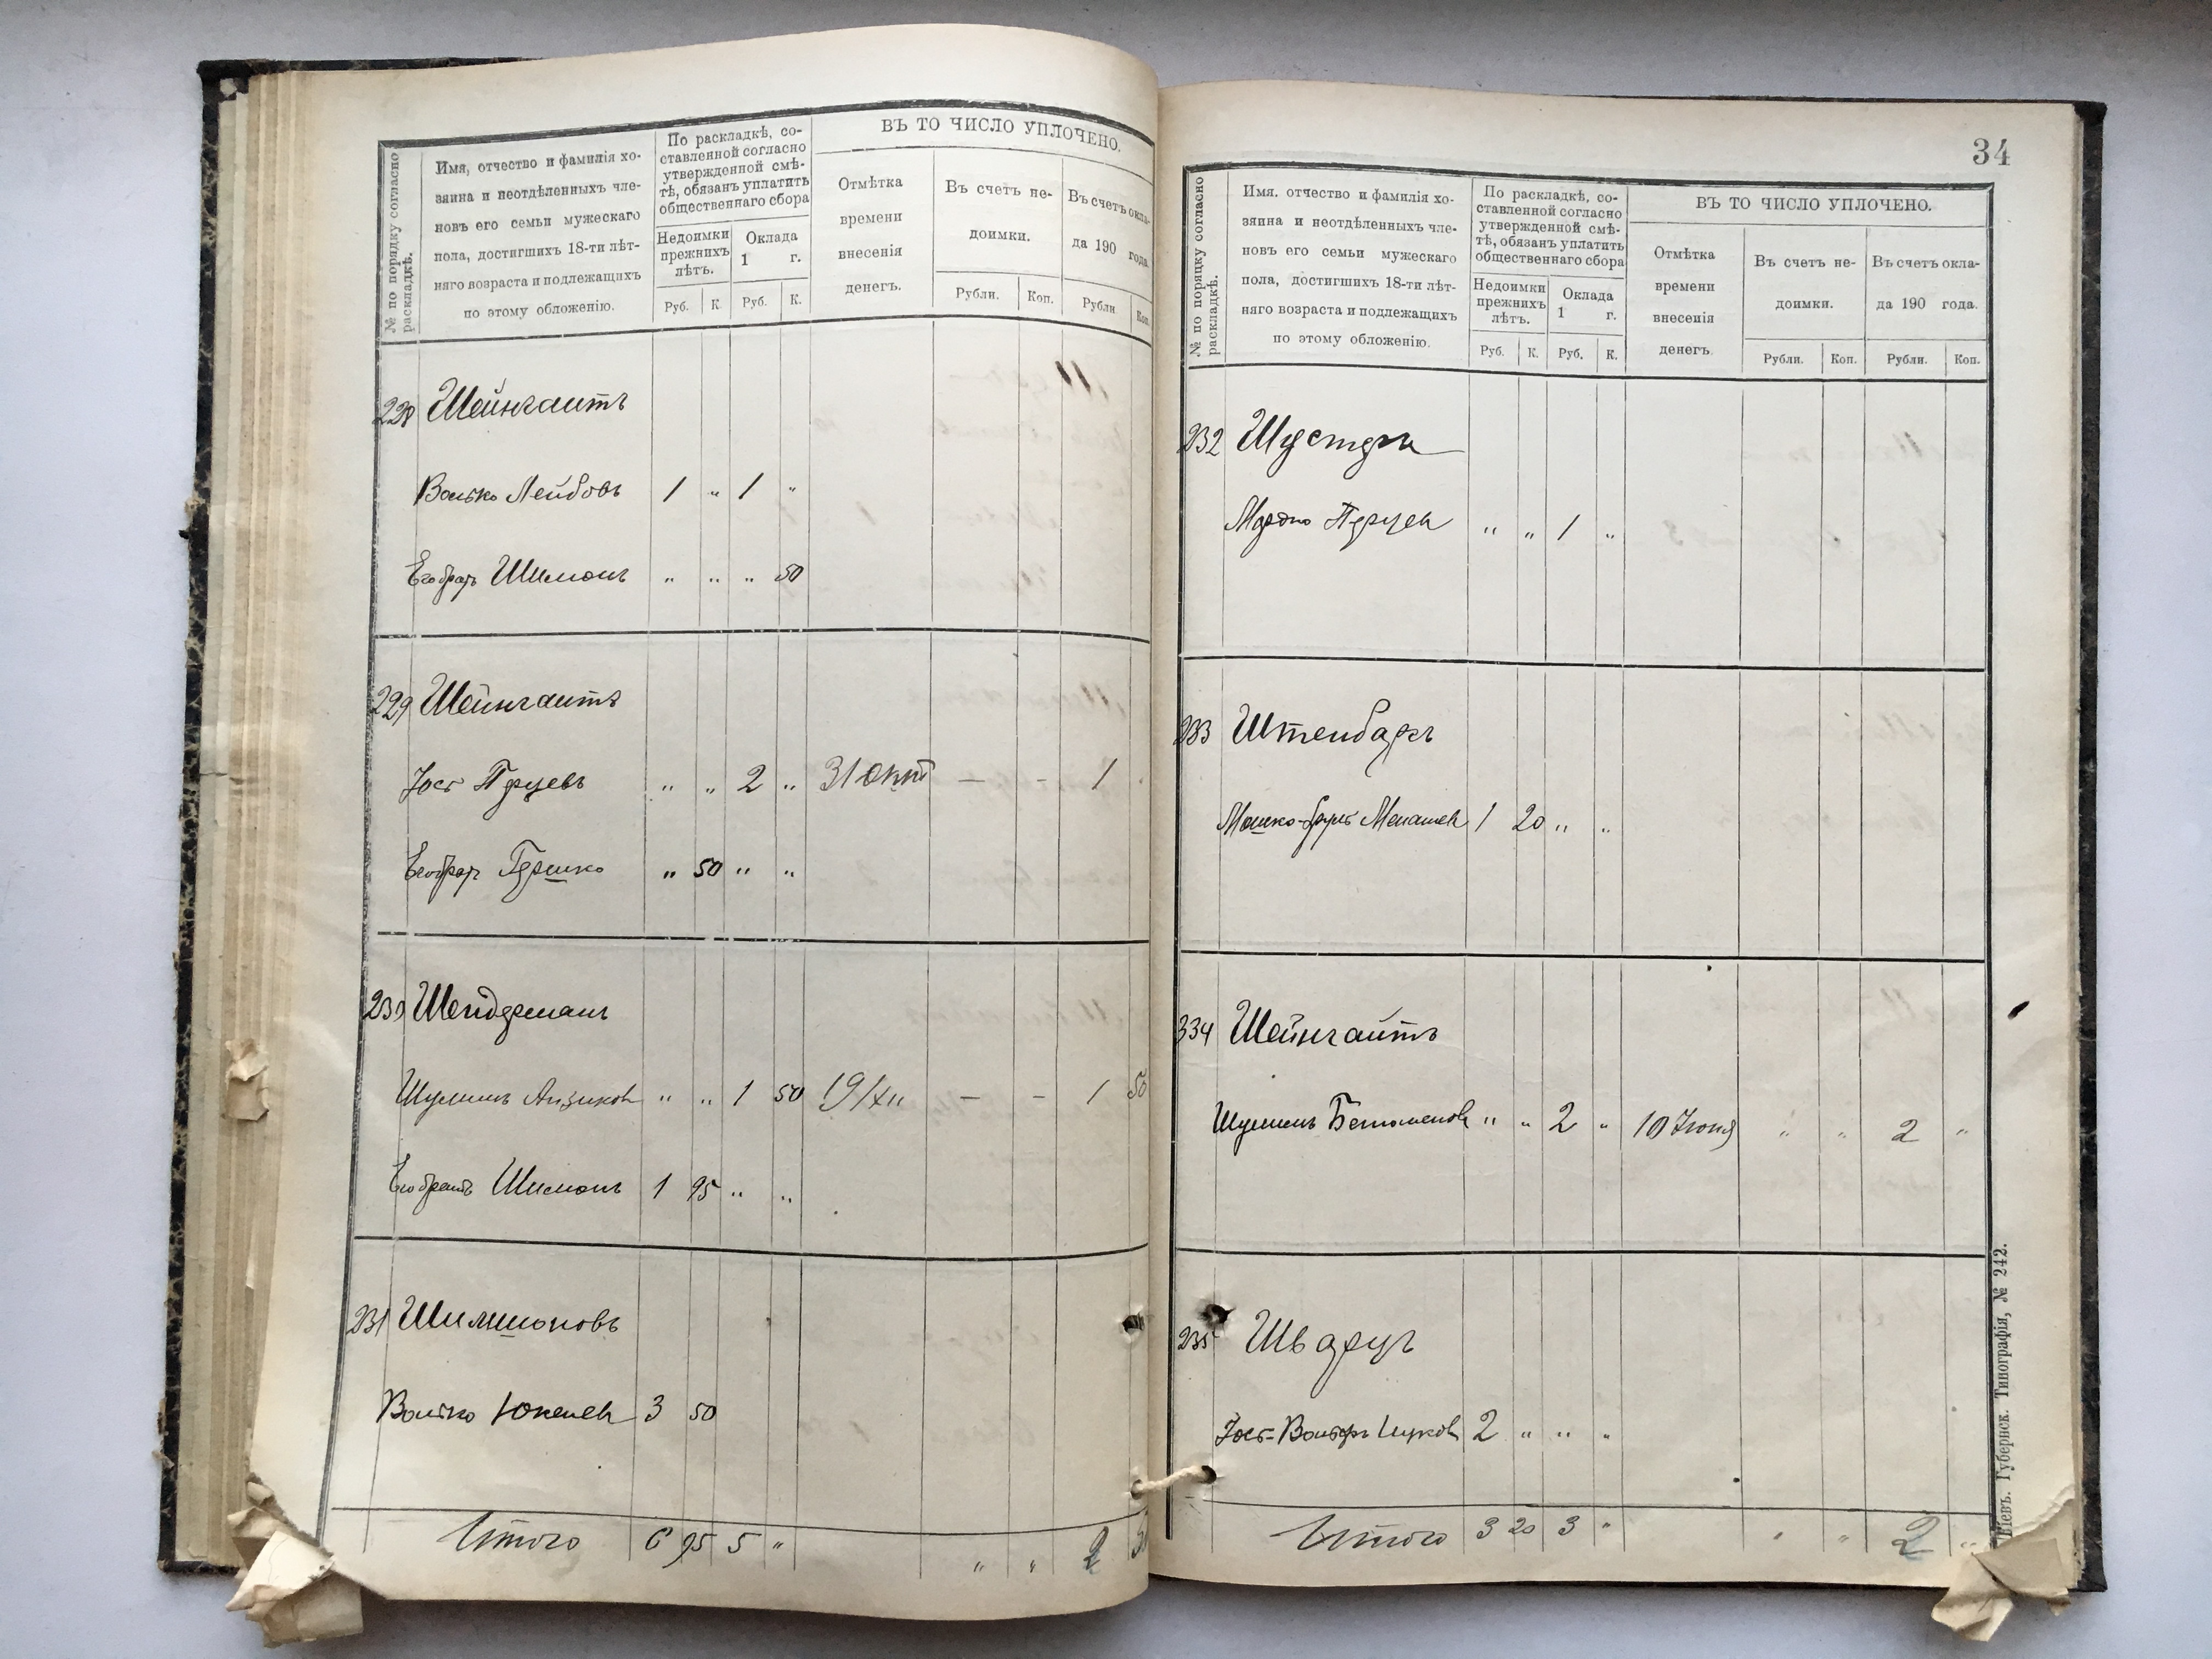 № по порядку согласно
раскладкѣ.
Имя, отчество и фамилія хо-
зяина и неотдѣленныхъ чле-
новъ его семьи мужескаго
пола, достигшихъ 18-ти лѣт-
няго возраста и подлежащихъ
по этому обложенію.
По раскладкѣ, со-
ставленной согласно
утвержденной смѣ-
тѣ, обязанъ уплатить
общественнаго сбора
Недоимки
прежнихъ
лѣтъ.
Оклада
1 г.
Руб. К. Руб. К.
ВЪ ТО ЧИСЛО УПЛОЧЕНО.
Отмѣтка
времени
внесенія
денегъ.
Въ счетъ не-
доимки.
Въ счетъ окла-
да 190 года
Рубли. Коп. Рубли Коп.
228 Шейнгаитъ
Волько Лейбовъ 1 " 1 "
Его братъ Шимонъ " " " 50
229 Шейнгаитъ
Іось Перцевъ " " 2 " 31 Окт — - 1
Его братъ Гершко " 50 " "
230 Шейдерманъ
Шулимъ Айзиковъ " " 1 50 19/XII — - 1 50
Его братъ Шимонъ 1 95 " "
231 Шимшоновъ
Волько Юкелев 3 50
Итого 6 95 5 " " " 2 50
34
№ по порядку согласно
раскладкѣ.
Имя. отчество и фамилія хо-
зяина и неотдѣленныхъ чле-
новъ его семьи мужескаго
пола, достигшихъ 18-ти лѣт-
няго возраста и подлежащихъ
по этому обложенію.
По раскладкѣ, со-
ставленной согласно
утвержденной смѣ-
тѣ, обязанъ уплатить
общественнаго сбора
Недоимки
прежнихъ
лѣтъ.
Оклада
1 г.
Руб. К. Руб. К.
ВЪ ТО ЧИСЛО УПЛОЧЕНО.
Отмѣтка
времени
внесенія
денегъ.
Въ счетъ не-
доимки.
Въ счетъ окла-
да 190 года.
Рубли. Коп. Рубли. Коп.
232 Шустеръ
Мордко Перцев " " 1 "
233 Штенбаръ
Мошко- Менашев 1 20 " "
334 Шейнгайтъ
Шулимъ " " 2 " 10 Іюня " " 2 "
235 Шварцъ
Іось-Вольфъ Ицков 2 " " "
Итого 3 20 3 " " " 2 "
Кіевъ. Губернск. Типографія, № 242.